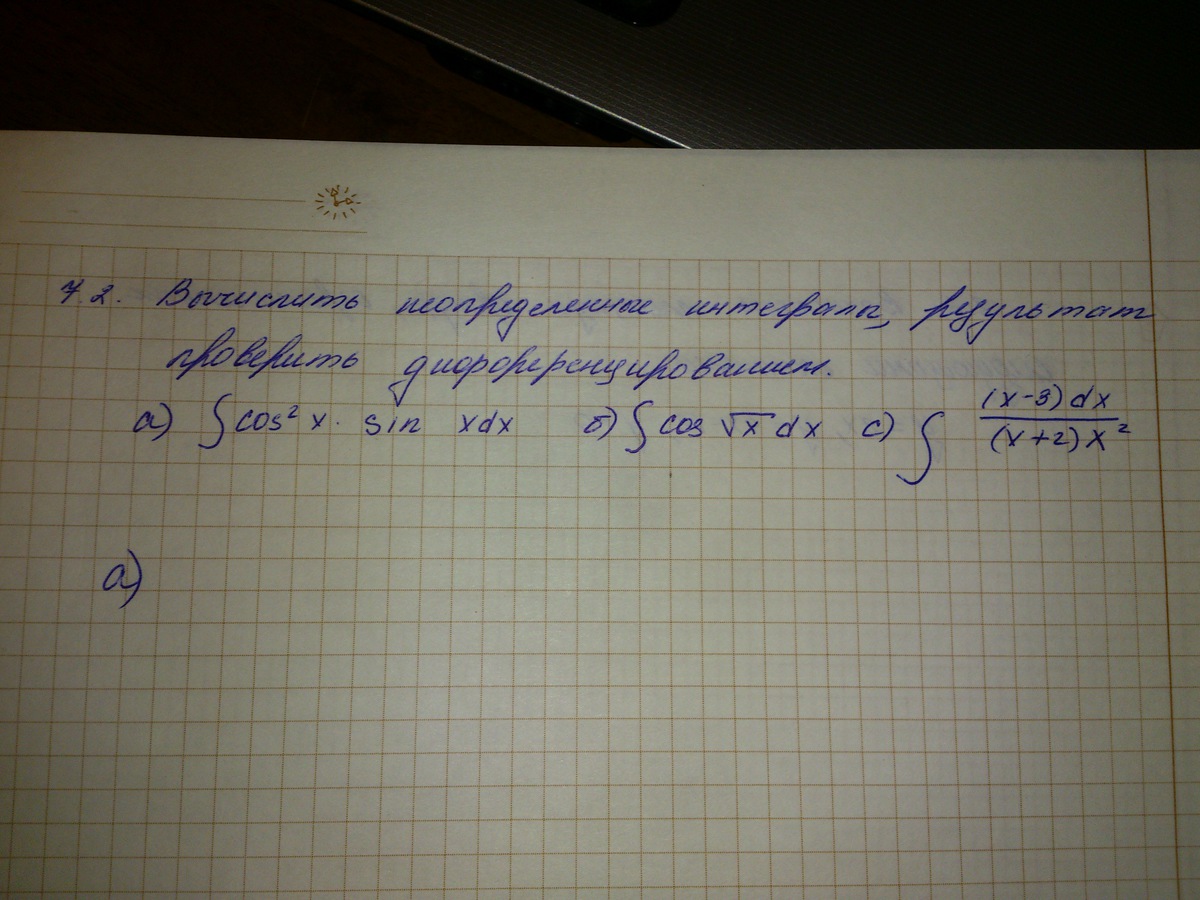 7.2. Вычислить неопределенные интегралы, результат
проверить дифференцированием.
а) ∫ cos² x · sin x dx б) ∫ cos √x dx с) ∫ (x-3) dx / (x+2) x²
а)